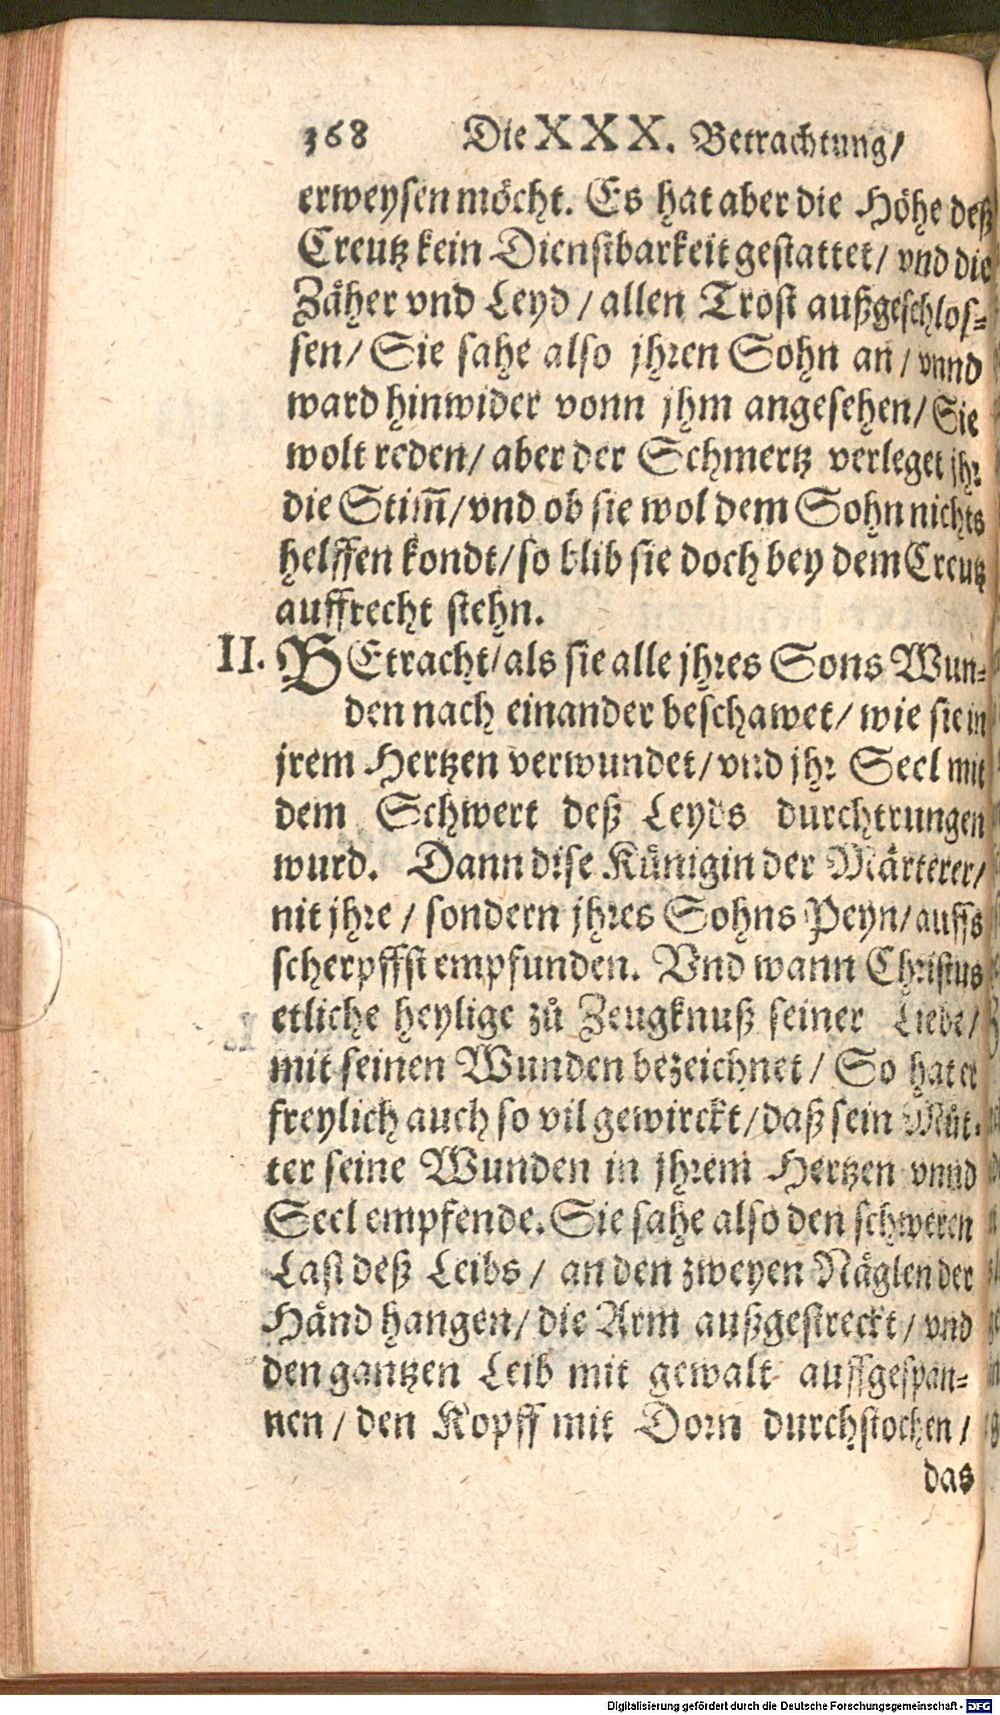 368 Die XXX. Betrachtung/
erweysen möcht. Es hat aber die Höhe deß
Creutz kein Dienstbarkeit gestattet/ vnd die
Zäher vnd Leyd / allen Trost außgeschlos-
sen/ Sie sahe also jhren Sohn an / vnnd
ward hinwider vonn jhm angesehen/ Sie
wolt reden/ aber der Schmertz verleget jhr
die Stim̄/ vnd ob sie wol dem Sohn nichts
helffen kondt/ so blib sie doch bey dem Creutz
auffrecht stehn.
II. BEtracht/ als sie alle jhres Sons Wun-
den nach einander beschawet/ wie sie in
jrem Hertzen verwundet/ vnd jhr Seel mit
dem Schwert deß Leyds durchtrungen
wurd. Dann dise Künigin der Märterer/
nit jhre / sondern jhres Sohns Peyn/ auffs
scherpffst empfunden. Vnd wann Christus
etliche heylige zů Zeugknuß seiner Liebe/
mit seinen Wunden bezeichnet/ So hat er
freylich auch so vil gewirckt/ daß sein Můt-
ter seine Wunden in jhrem Hertzen vnnd
Seel empfende. Sie sahe also den schweren
Last deß Leibs / an den zweyen Näglen der
Händ hangen/ die Arm außgestreckt / vnd
den gantzen Leib mit gewalt auffgespan-
nen / den Kopff mit Dorn durchstochen /
das
Digitalisierung gefördert durch die Deutsche Forschungsgemeinschaft - DFG